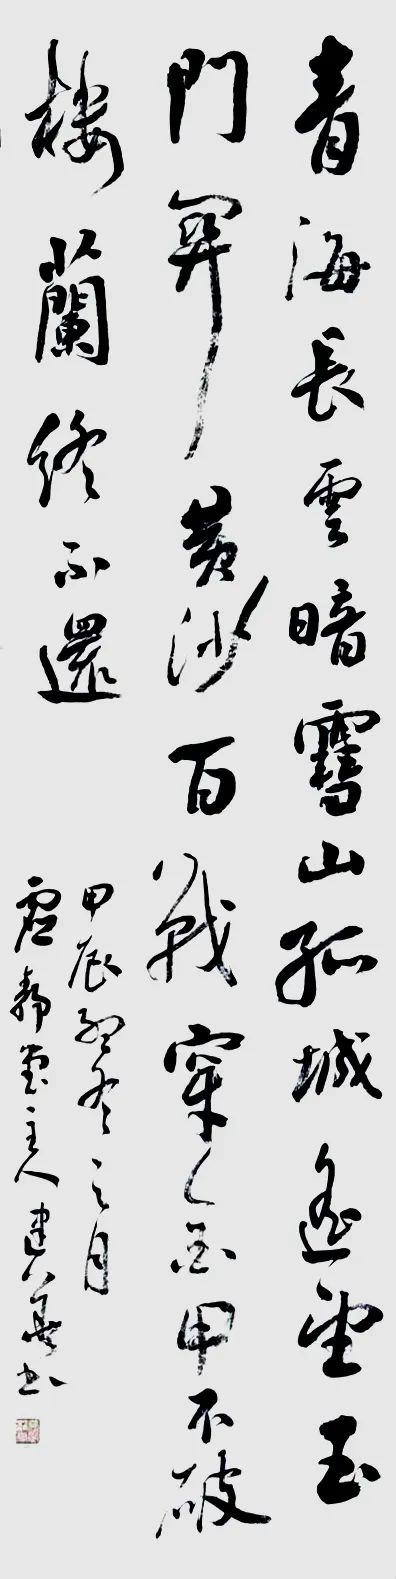 青海長雲暗雪山孤城遙望玉
門關黃沙百戰穿金甲不破
樓蘭終不還
甲辰冬之月
虛靜主人建書